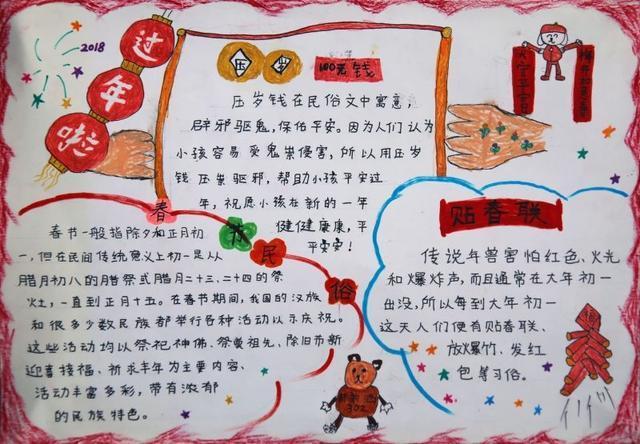 2018
过年啦
压岁
100元钱
压岁钱在民俗文中寓意
辟邪驱鬼,保佑平安。因为人们认为
小孩容易受鬼祟侵害,所以用压岁
钱压祟驱邪,帮助小孩平安过
年,祝愿小孩在新的一年
健健康康,平
平安安!
春节民俗
春节一般指除夕和正月初
一,但在民间传统意义上初一是从
腊月初八的腊祭或腊月二十三、二十四的祭
灶,一直到正月十五。在春节期间,我国的汉族
和很多少数民族都举行各种活动以示庆祝。
这些活动均以祭祀神佛、祭奠祖先、除旧布新
迎喜接福、祈求丰年为主要内容、
活动丰富多彩,带有浓郁
的民族特色。
贴春联
传说年兽害怕红色、火光
和爆炸声,而且通常在大年初一
出没,所以每到大年初一
这天人们便有贴春联、
放爆竹、发红
包等习俗。
302